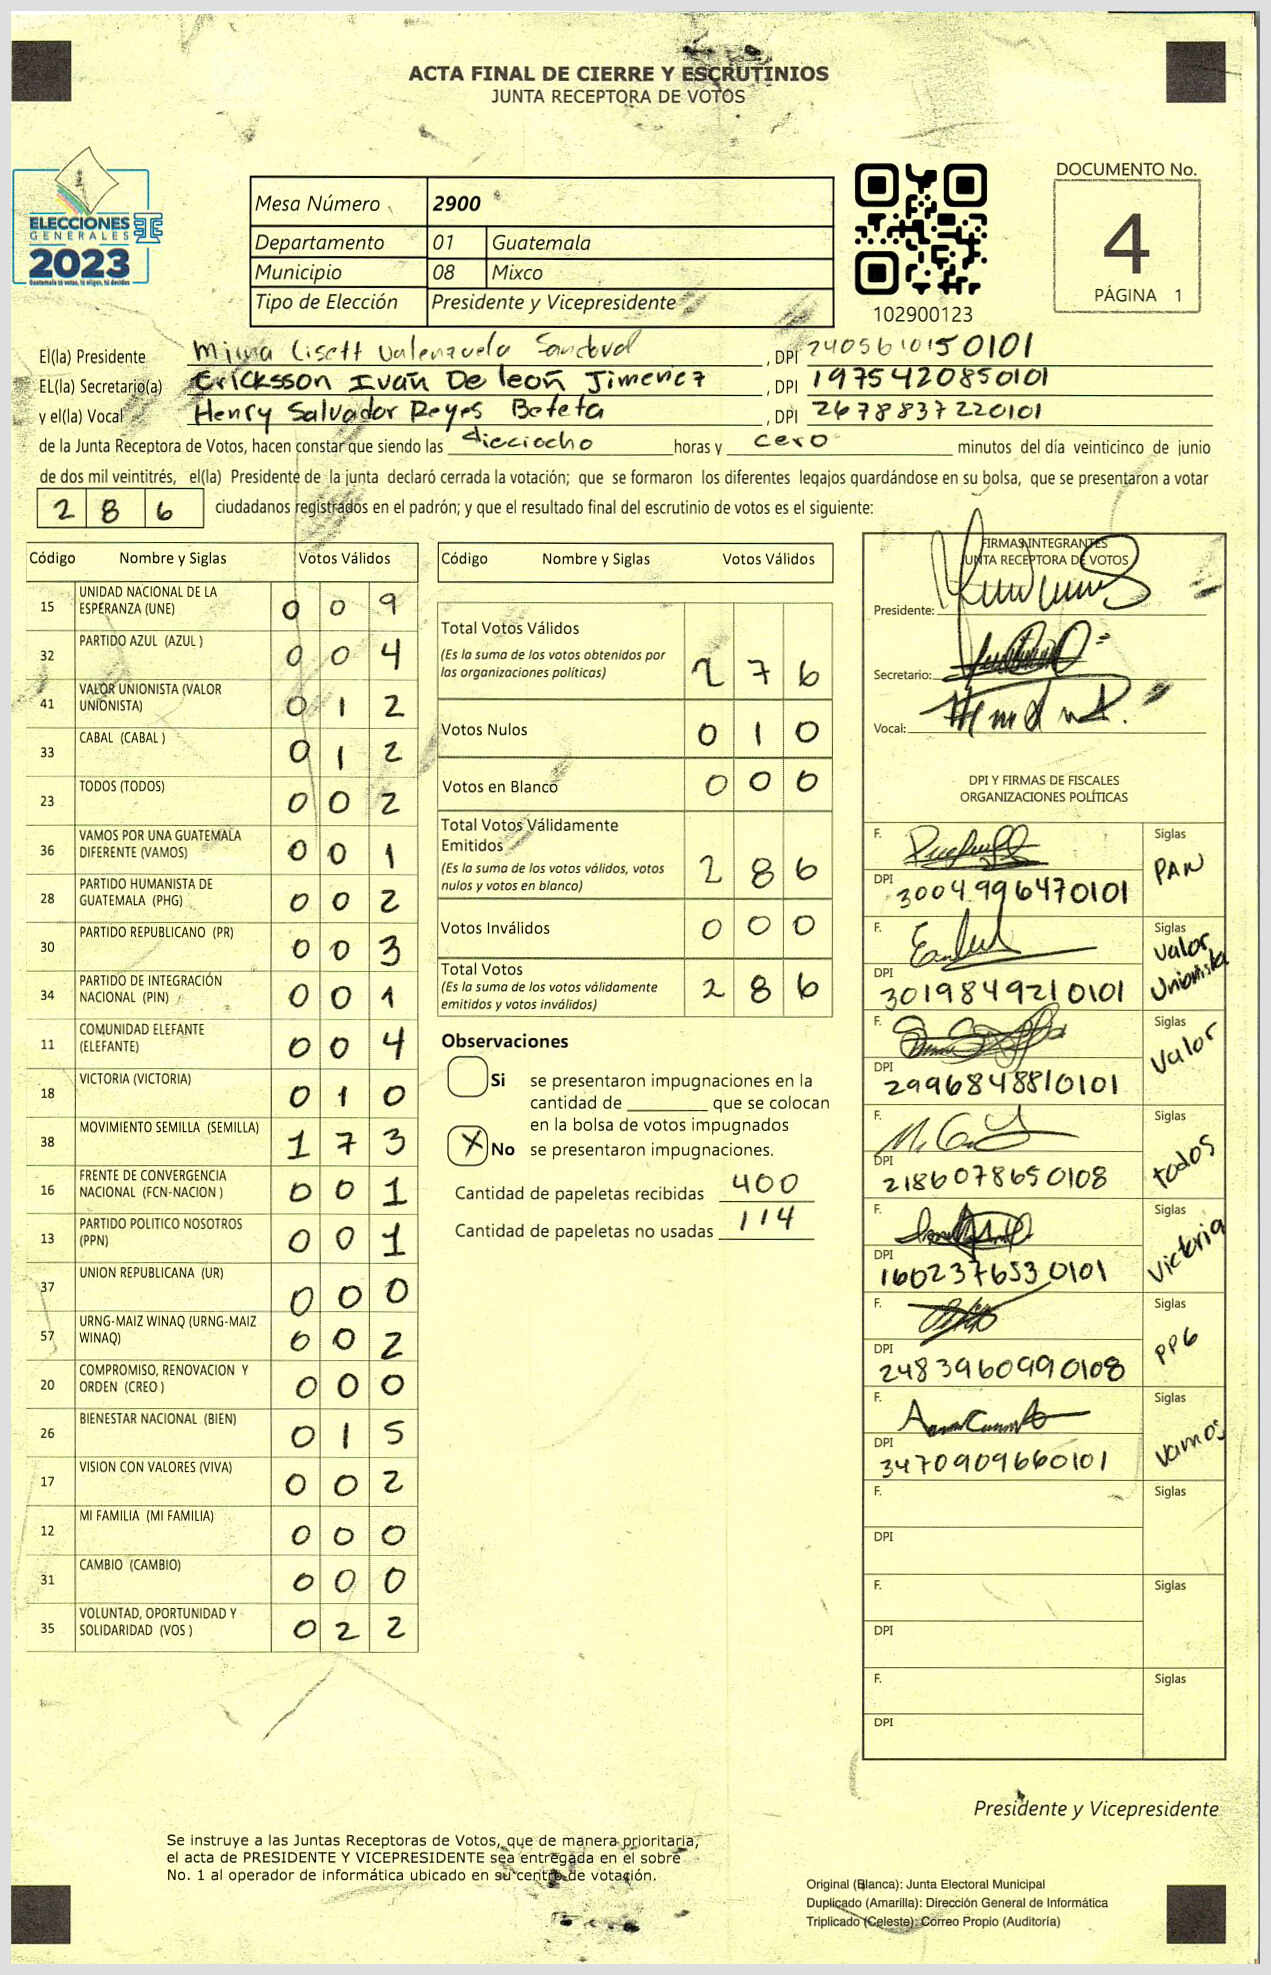 ACTA FINAL DE CIERRE Y ESCRUTINIOS
JUNTA RECEPTORA DE VOTOS
ELECCIONES
GENERALES
2023
Guatemala tú votas, tú eliges, tú decides
Mesa Número 2900
Departamento 01 Guatemala
Municipio 08 Mixco
Tipo de Elección Presidente y Vicepresidente
102900123
DOCUMENTO No.
4
PÁGINA 1
El(la) Presidente Mirna Lisett Valenzuela Sandoval , DPI 2405610150101
EL(la) Secretario(a) Ericksson Iván De león Jimenez , DPI 1975420850101
y el(la) Vocal Henry Salvador Reyes Beteta , DPI 2678837220101
de la Junta Receptora de Votos, hacen constar que siendo las dieciocho horas y cero minutos del día veinticinco de junio
de dos mil veintitrés, el(la) Presidente de la junta declaró cerrada la votación; que se formaron los diferentes legajos guardándose en su bolsa, que se presentaron a votar
286 ciudadanos registrados en el padrón; y que el resultado final del escrutinio de votos es el siguiente:
Código Nombre y Siglas Votos Válidos
15 UNIDAD NACIONAL DE LA
ESPERANZA (UNE) 009
32 PARTIDO AZUL (AZUL ) 004
41 VALOR UNIONISTA (VALOR
UNIONISTA) 012
33 CABAL (CABAL ) 012
23 TODOS (TODOS) 002
36 VAMOS POR UNA GUATEMALA
DIFERENTE (VAMOS) 001
28 PARTIDO HUMANISTA DE
GUATEMALA (PHG) 002
30 PARTIDO REPUBLICANO (PR) 003
34 PARTIDO DE INTEGRACIÓN
NACIONAL (PIN) 001
11 COMUNIDAD ELEFANTE
(ELEFANTE) 004
18 VICTORIA (VICTORIA) 010
38 MOVIMIENTO SEMILLA (SEMILLA) 173
16 FRENTE DE CONVERGENCIA
NACIONAL (FCN-NACION ) 001
13 PARTIDO POLITICO NOSOTROS
(PPN) 001
37 UNION REPUBLICANA (UR) 000
57 URNG-MAIZ WINAQ (URNG-MAIZ
WINAQ) 002
20 COMPROMISO, RENOVACION Y
ORDEN (CREO ) 000
26 BIENESTAR NACIONAL (BIEN) 015
17 VISION CON VALORES (VIVA) 002
12 MI FAMILIA (MI FAMILIA) 000
31 CAMBIO (CAMBIO) 000
35 VOLUNTAD, OPORTUNIDAD Y
SOLIDARIDAD (VOS ) 022
Código Nombre y Siglas Votos Válidos
Total Votos Válidos
(Es la suma de los votos obtenidos por
las organizaciones políticas) 276
Votos Nulos 010
Votos en Blanco 000
Total Votos Válidamente
Emitidos
(Es la suma de los votos válidos, votos
nulos y votos en blanco) 286
Votos Inválidos 000
Total Votos
(Es la suma de los votos válidamente
emitidos y votos inválidos) 286
Observaciones
Si se presentaron impugnaciones en la
cantidad de ________ que se colocan
en la bolsa de votos impugnados
X No se presentaron impugnaciones.
Cantidad de papeletas recibidas 400
Cantidad de papeletas no usadas 114
FIRMAS INTEGRANTES
JUNTA RECEPTORA DE VOTOS
Presidente:
Secretario:
Vocal:
DPI Y FIRMAS DE FISCALES
ORGANIZACIONES POLÍTICAS
F. Siglas PAN
DPI 3004996470101
F. Siglas Valor Unionista
DPI 3019849210101
F. Siglas Valor
DPI 2996848810101
F. Siglas todos
DPI 2186078650108
F. Siglas Victoria
DPI 1602376530101
F. Siglas PPG
DPI 2483960990108
F. Siglas Vamos
DPI 3470909660101
F. Siglas
DPI
F. Siglas
DPI
F. Siglas
DPI
Presidente y Vicepresidente
Se instruye a las Juntas Receptoras de Votos, que de manera prioritaria,
el acta de PRESIDENTE Y VICEPRESIDENTE sea entregada en el sobre
No. 1 al operador de informática ubicado en su centro de votación.
Original (Blanca): Junta Electoral Municipal
Duplicado (Amarilla): Dirección General de Informática
Triplicado (Celeste): Correo Propio (Auditoría)